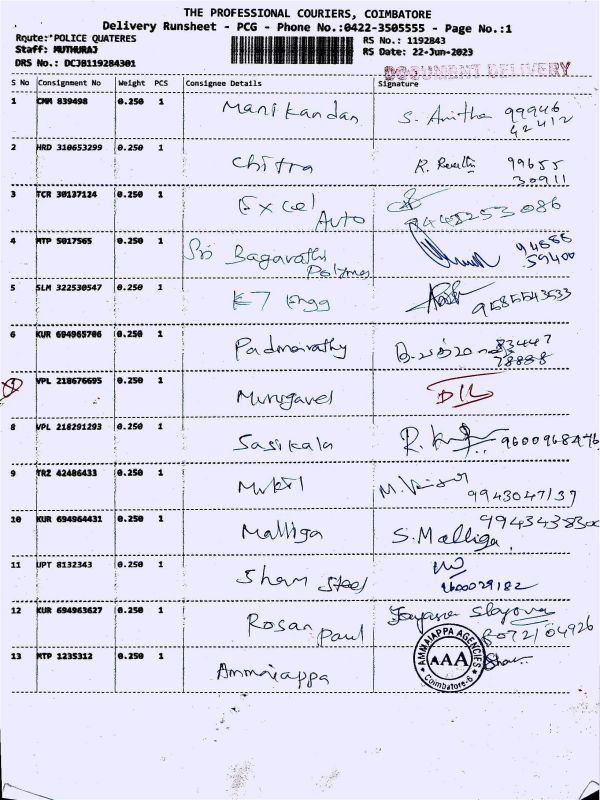 THE PROFESSIONAL COURIERS, COIMBATORE
Delivery Runsheet - PCG - Phone No.:0422-3505555 - Page No.:1
Route:*POLICE QUATERES
RS No.: 1192843
Staff: MUTHURAJ
RS Date: 22-Jun-2023
DRS No.: DCJB119284301
DOCUMENT DELIVERY
S No Consignment No Weight PCS Consignee Details Signature
1 CMM 839498 0.250 1 Manikandan S. Anitha 99946
42412
2 HRD 310653299 0.250 1 Chitra R. 99655
30911
3 TCR 30137124 0.250 1 Excel
Auto 9448253086
4 MTP 5017565 0.250 1 Sri Bagavathi
Polymes 94888
59400
5 SLM 322530547 0.250 1 K7 Engg 9585543533
6 KUR 694965706 0.250 1 Padmavathy 83447
78888
7 VPL 218676695 0.250 1 Murugavel D/L
8 VPL 218291293 0.250 1 Sasikala R. 9600968476
9 TRZ 42486433 0.250 1 Mukil M. 9943047137
10 KUR 694964431 0.250 1 Malliga S. Malliga. 9943438300
11 UPT 8132343 0.250 1 Sham Steel 9600029182
12 KUR 694963627 0.250 1 Rosan Paul 8072104926
13 MTP 1235312 0.250 1 Ammaiappa
AMMAIAPPA AGENCIES
AAA
Coimbatore-6